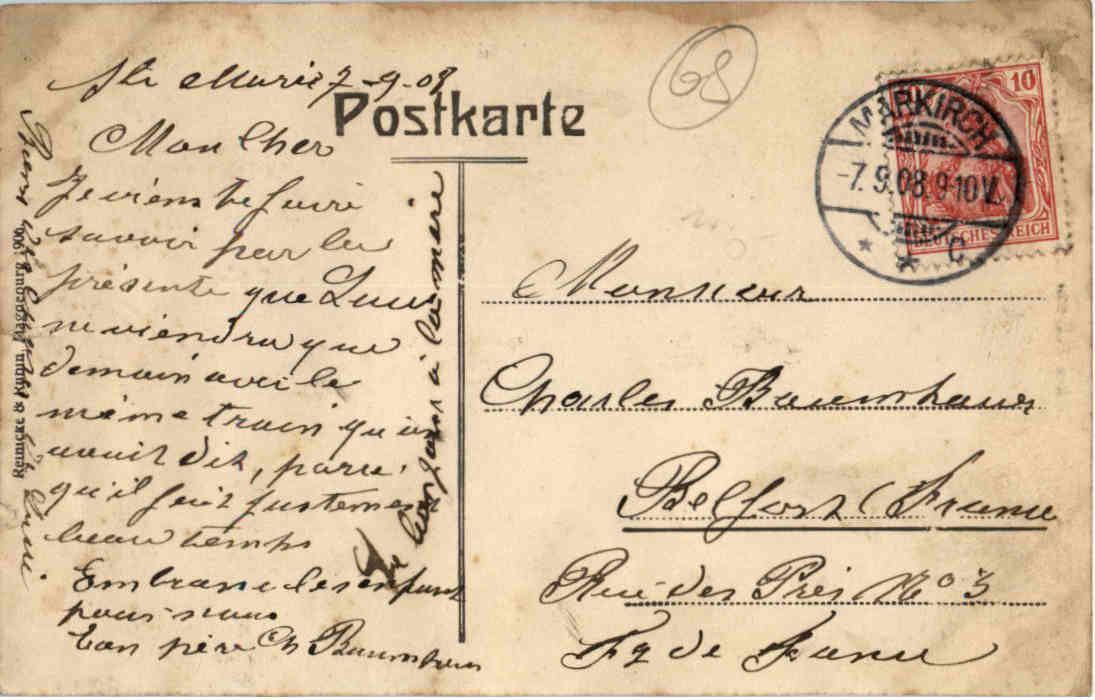 Ste Marie 7-9-08
Postkarte
68
10
MARKIRCH
-7.9.08.9-10V.
* * C
DEUTSCHES REICH
Mon Cher
Je viens te faire
savoir par la
présente que
ne viendra que
demain avec le
même train qu'on
avait dit, parce
qu'il fait justement
beau temps
Embrasse les enfants
pour nous
Ton père Ch Baumhauer
à la mère
Reinicke & Rubin, Magdeburg 1906
Monsieur
Charles Baumhauer
Belfort (France
Rue des Prés No 3
Fg de France